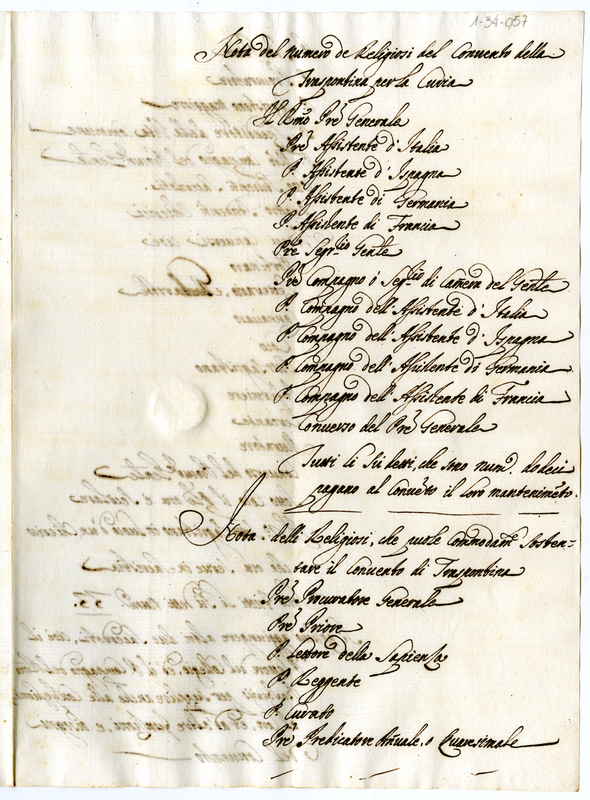 1-34-057
Nota del numero de Religiosi del Convento della
Traspontina per la Curia
Il Rmo Pre Generale
Pre Assistente d'Italia
P. Assistente d'Ispagna
P. Assistente di Germania
P. Assistente di Francia
Pre Segrio Genle
Pre Compagno ò Segrio di Camera del Genle
P. Compagno dell'Assistente d'Italia
P. Compagno dell'Assistente d'Ispagna
P. Compagno dell'Assistente di Germania
P. Compagno dell'Assistente di Francia
Converso del Pre Generale
Tutti li Sudetti, che sono num. dodeci
pagano al Convēto il loro mantenimēto.
Nota delli Religiosi, che puole Commodamte Sosten=
tare il Convento di Traspontina
Pre Procuratore Generale
Pre Priore
P. Lettore della Sapienza
P. Reggente
P. Curato
Pre Predicatore Annuale, o Quaresimale